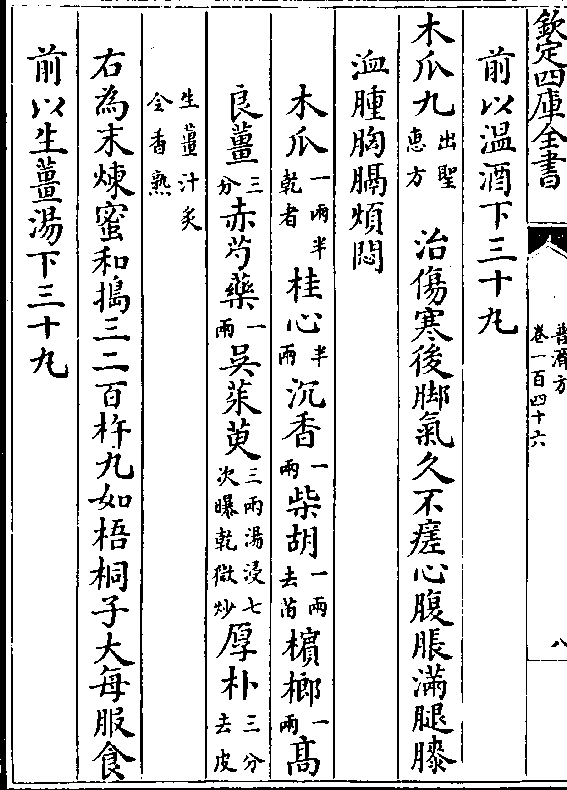 欽定四庫全書
普濟方
卷一百四十六
八
前以温酒下三十丸
木瓜丸出聖惠方 治傷寒後脚氣久不瘥心腹脹滿腿膝
洫腫胸膈煩悶
木瓜一兩半乾者 桂心半兩 沉香一兩 柴胡一兩去苗 檳榔一兩 髙
良薑三分 赤芍藥一兩 吳茱萸三兩湯浸七次曝乾微炒 厚朴三分去皮
生薑汁炙令香熟
右為末煉蜜和搗三二百杵丸如梧桐子大每服食
前以生薑湯下三十丸